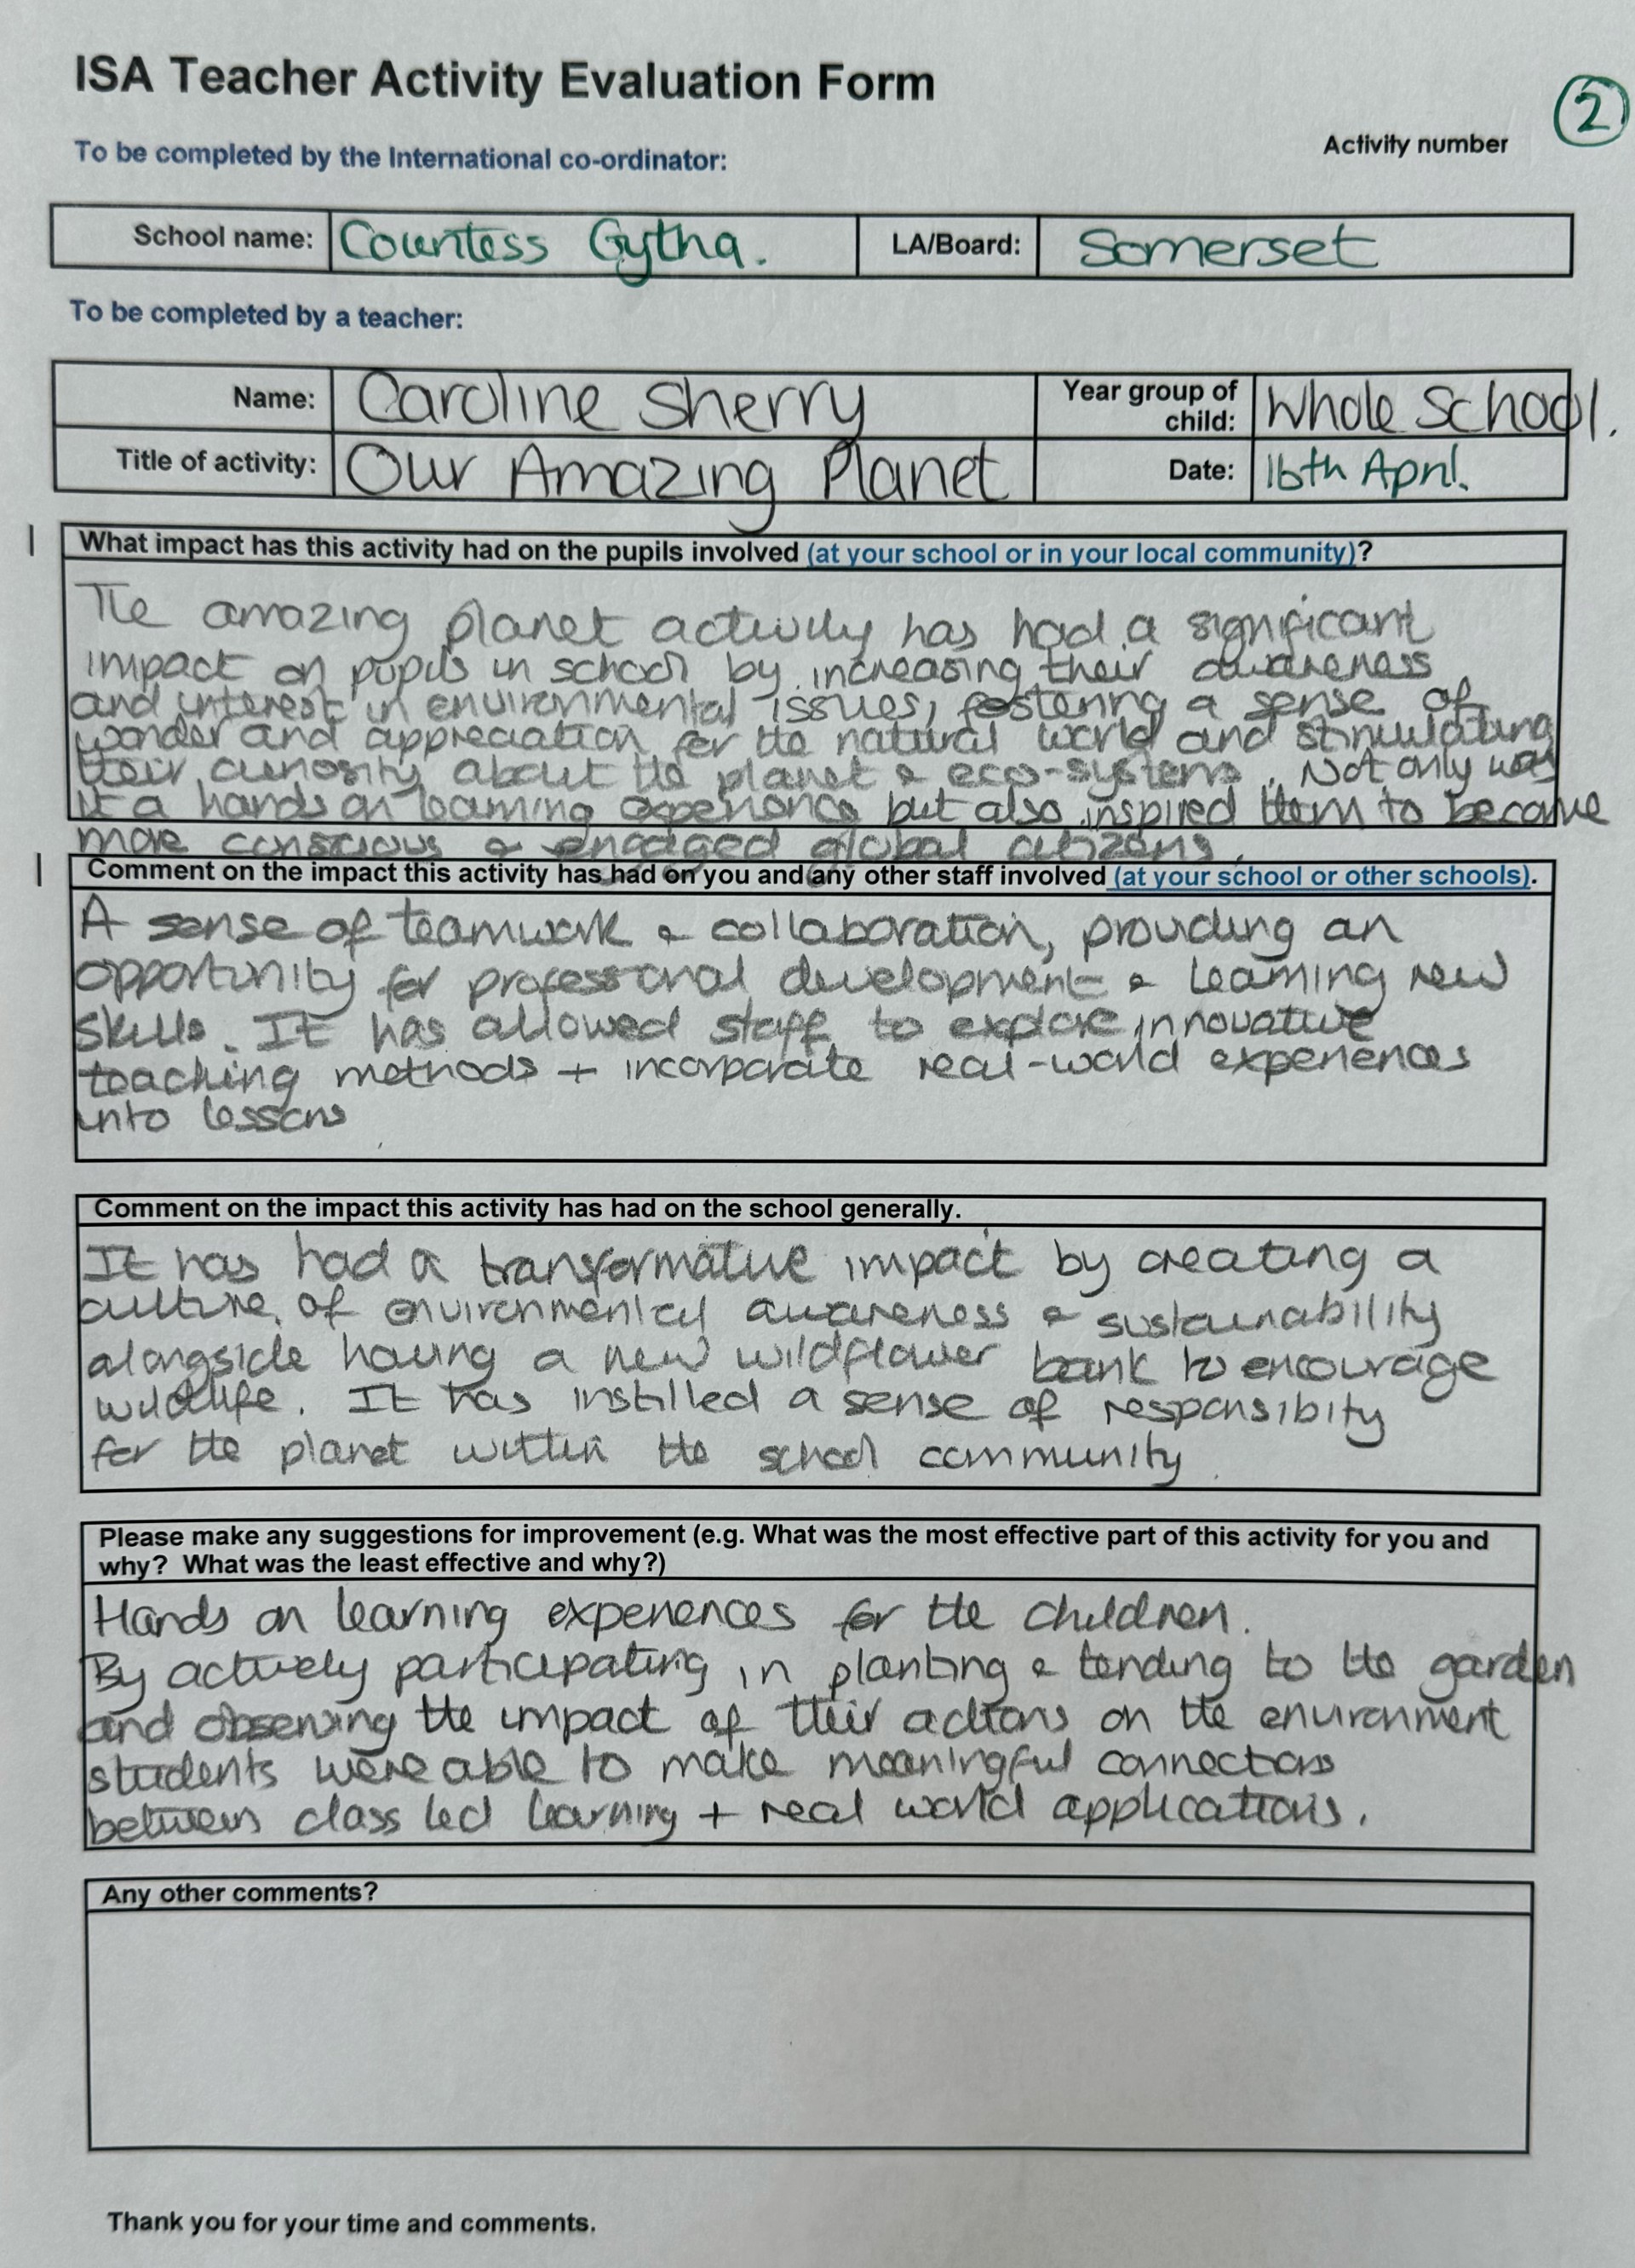 ISA Teacher Activity Evaluation Form
2
Activity number
To be completed by the International co-ordinator:
School name: Countess Gytha. LA/Board: Somerset
To be completed by a teacher:
Name: Caroline Sherry Year group of child: Whole School.
Title of activity: Our Amazing Planet Date: 16th April.
What impact has this activity had on the pupils involved (at your school or in your local community)?
The amazing planet activity has had a significant
impact on pupils in school by increasing their awareness
and interest in environmental issues, fostering a sense of
wonder and appreciation for the natural world and stimulating
their curiosity about the planet & eco-systems. Not only was
it a hands on learning experience but also inspired them to become
more conscious & engaged global citizens.
Comment on the impact this activity has had on you and any other staff involved (at your school or other schools).
A sense of teamwork & collaboration, providing an
opportunity for professional development & learning new
skills. It has allowed staff to explore innovative
teaching methods + incorporate real-world experiences
into lessons
Comment on the impact this activity has had on the school generally.
It has had a transformative impact by creating a
culture of environmental awareness & sustainability
alongside having a new wildflower bank to encourage
wildlife. It has instilled a sense of responsibity
for the planet within the school community.
Please make any suggestions for improvement (e.g. What was the most effective part of this activity for you and
why? What was the least effective and why?)
Hands on learning experiences for the children.
By actively participating in planting & tending to the garden
and observing the impact of their actions on the environment
students were able to make meaningful connections
between class led learning + real world applications.
Any other comments?
Thank you for your time and comments.